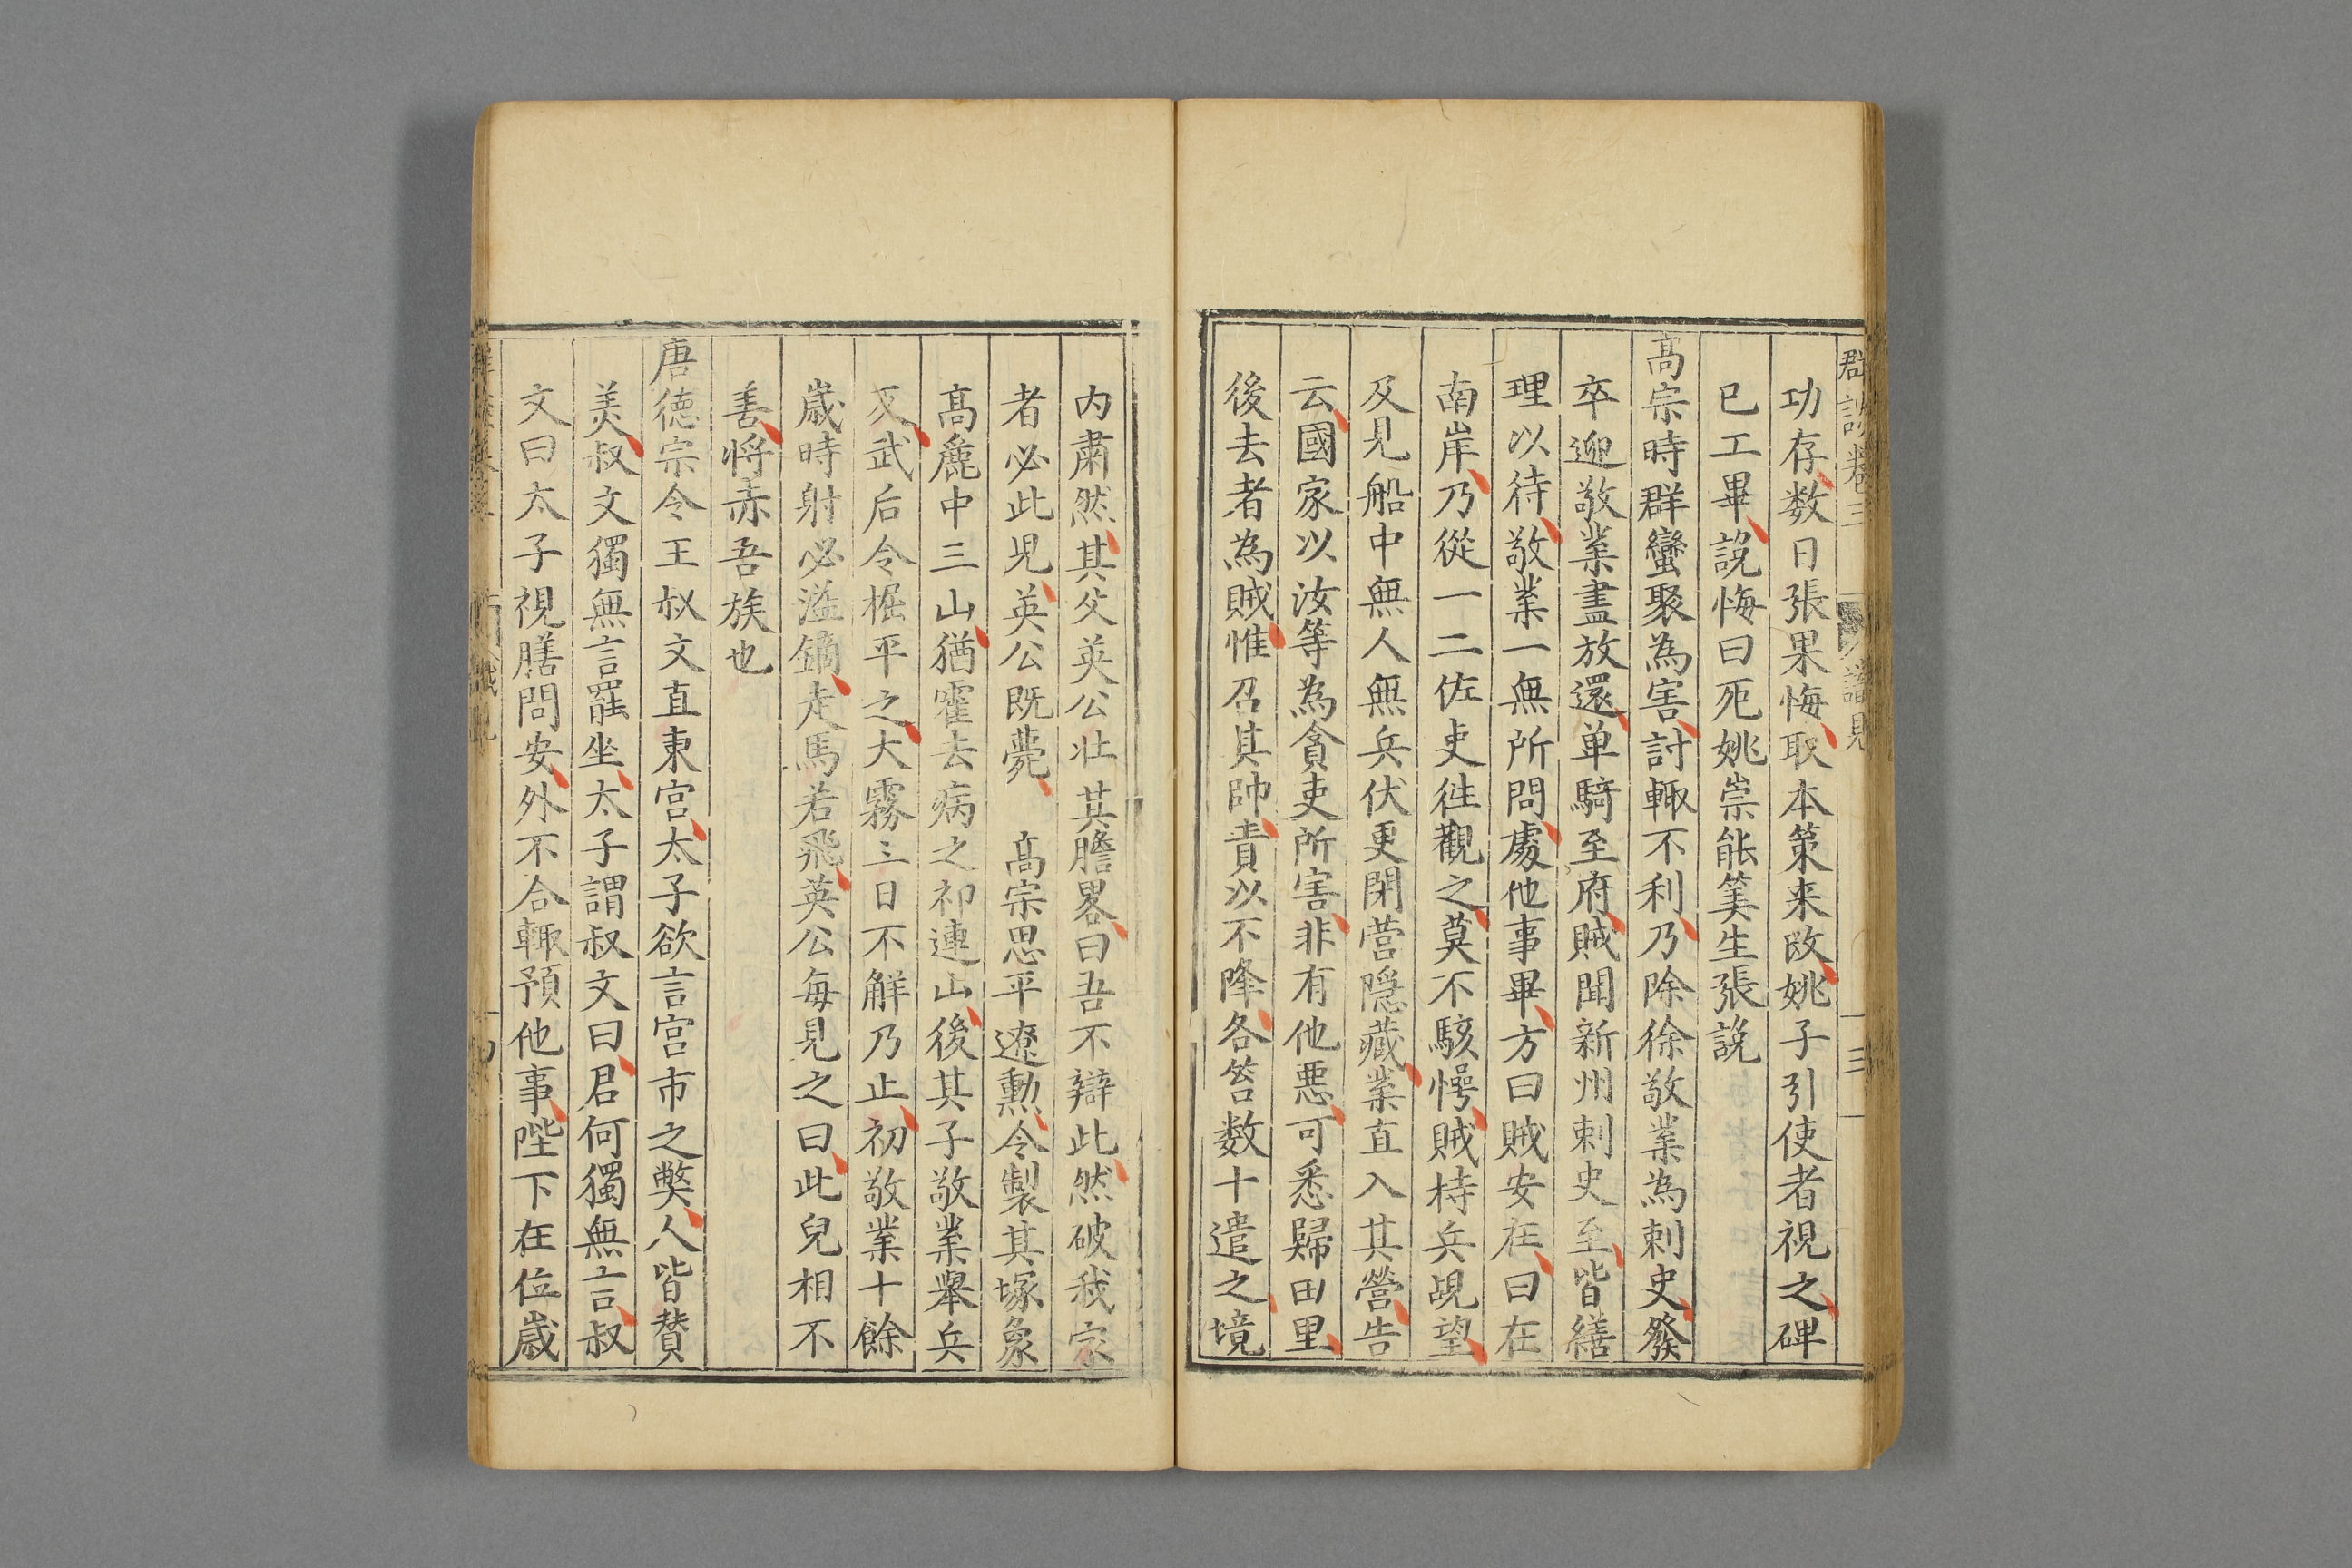 群談卷三
識見
三
功存数日張果悔取本策来攺姚子引使者視之碑
已工畢說悔曰死姚崇能筭生張說
髙宗時群蠻聚為害討輙不利乃除徐敬業為刺史發
卒迎敬業盡放還单騎至府賊聞新州刺史至皆繕
理以待敬業一無所問處他事畢方曰賊安在曰在
南岸乃從一二佐吏徃觀之莫不駭愕賊持兵覘望
及見船中無人無兵伏更閉营隠藏業直入其營告
云國家以汝等為貪吏所害非有他悪可悉歸田里
後去者為賊惟召其帥責以不降各笞数十遣之境
内肅然其父英公壮其膽畧曰吾不辯此然破我家
者必此児英公既薨　髙宗思平遼勲令製其塚象
髙麗中三山猶霍去病之祁連山後其子敬業舉兵
反武后令掘平之大霧三日不解乃止初敬業十餘
歳時射必溢鏑走馬若飛英公每見之曰此兒相不
善将赤吾族也
唐徳宗令王叔文直東宫太子欲言宫市之弊人皆賛
美叔文獨無言罷坐太子謂叔文曰君何獨無言叔
文曰太子視膳問安外不合輙預他事陛下在位歳